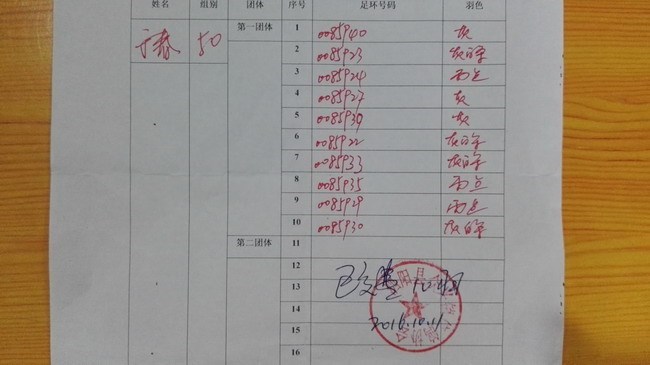 姓名 组别 团体 序号 足环号码 羽色
50 第一团体 1 0085940 灰
2 0085923 灰白条
3 0085924 雨点
4 0085927 灰
5 0085939 灰
6 0085922 灰白条
7 0085933 灰白条
8 0085935 雨点
9 0085929 雨点
10 0085930 灰白条
第二团体 11
12
13
14
2016.10.11
15
16